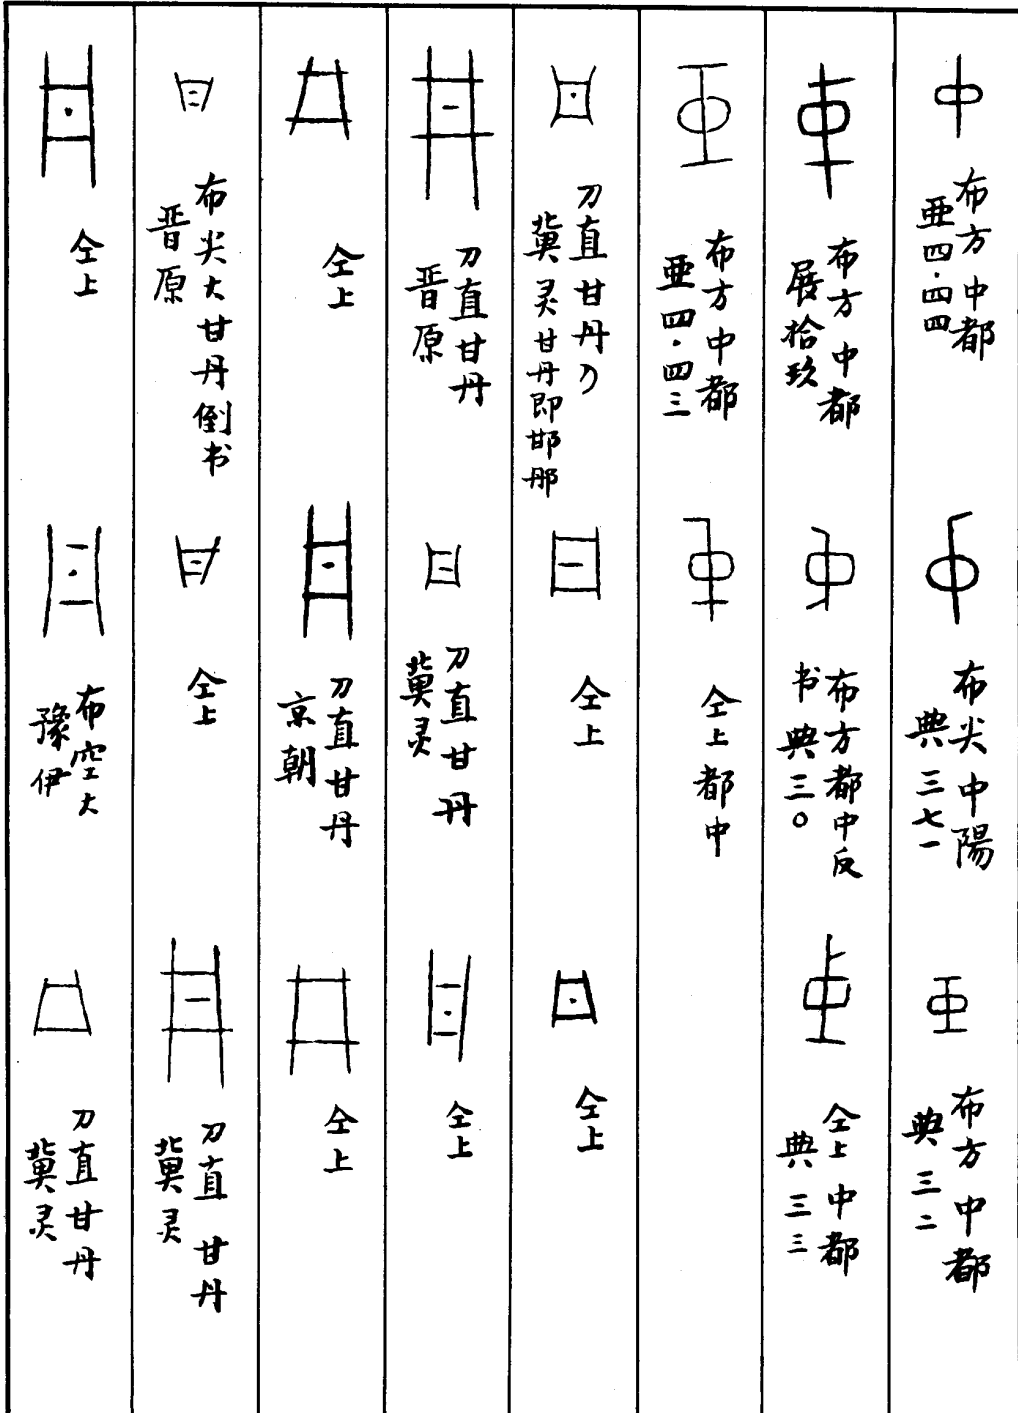 布方中都
亜四·四四
布尖中陽
典三七一
布方中都
典三二
布方中都
展拾玖
布方都中反
书典三〇
仝上中都
典三三
布方中都
亜四·四三
仝上都中
刀直甘丹
冀灵甘丹即邯郸
仝上
仝上
刀直甘丹
晋原
刀直甘丹
冀灵
仝上
仝上
刀直甘丹
京朝
仝上
布尖大甘丹倒书
晋原
仝上
刀直甘丹
冀灵
仝上
布空大
豫伊
刀直甘丹
冀灵